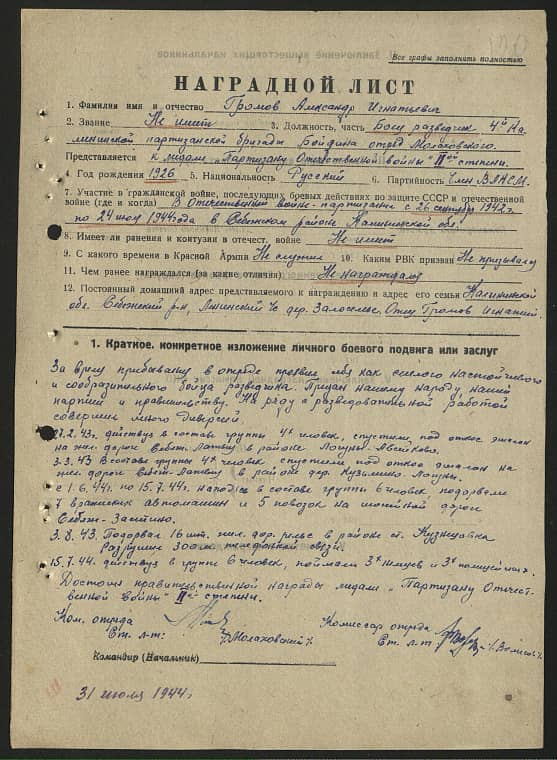 Все графы заполнить полностью
НАГРАДНОЙ ЛИСТ
1. Фамилия имя и отчество Громов Александр Игнатьевич
2. Звание Не имеет 3. Должность, часть Боец разведчик 4й Ка-
лининской партизанской бригады Бойдина отряд Молаховского.
Представляется к медали "Партизану Отечественной войны" IIой степени.
4 Год рождения 1926 5. Национальность Русский 6. Партийность Член ВЛКСМ.
7. Участие в гражданской войне, последующих боевых действиях по защите СССР и отечественной
войне (где и когда) В Отечественной войне - партизаны с 26 сентября 1942 г.
по 24 июл 1944 года в Себежском районе, Калининской обл.
8. Имеет ли ранения и контузии в отечест. войне Не имеет
9. С какого времени в Красной Армии Не служил 10. Каким РВК призван Не призывался
11. Чем ранее награждался (за какие отличия) Не награждался
12. Постоянный домашний адрес представляемого к награждению и адрес его семьи Калининской
обл. Себежский р-н, Лининский с/с дер. Залоселье. Отец Громов Игнатий.
1. Краткое, конкретное изложение личного боевого подвига или заслуг
За время пребывания в отряде проявил себя как смелого настойчивого
и сообразительного бойца разведчика. Предан нашему народу нашей
партии и правительству. На ряду с разведовательной работой
совершил много диверсий.
27.2.43г. действуя в составе группы 4х человек, спустили под откос эшелон
на жел. дороге Себеж-Латвия в районе
3.3.43 В составе группы 4х человек спустили под откос эшелон на
жел. дороге Себеж-Латвия в районе дер. Кузьмино-
с 1.6.44г. по 15.7.44г. находясь в составе группы 6 человек подорвали
7 вражеских автомашин и 5 повозок на шоссейной дороге
Себеж-Заситино.
3.8.43. Подорвал 16 шт. жел. дор. рельс в районе ст. Кузнецовка
Разрушил 300 м. телефонной связи.
15.7.44. действуя в группе 6 человек, поймали 3х немцев и 3х полицейских.
Достоин правительственной награды медали "Партизану Отечест-
венной войны" IIой степени.
Ком. отряда Комиссар отряда
Ст. л-т: /Молаховский/. Ст. л-т
Командир (Начальник)
31 июля 1944 г.